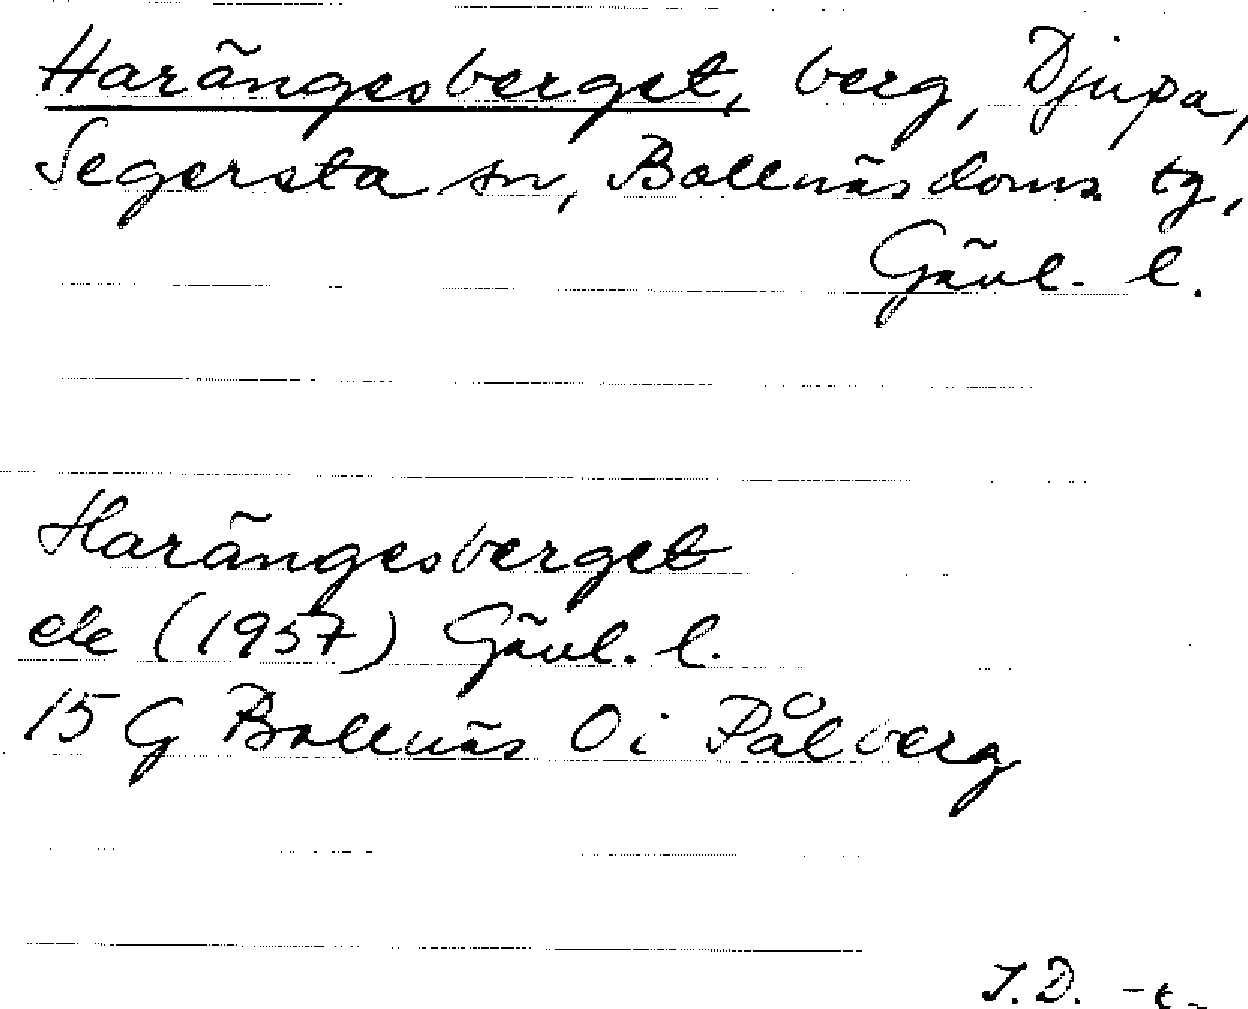 Harängesberget, berg, Djupa,
Segersta sn, Bollnäs doms. tg,
Gävl. l.
Harängesberget
ek (1957) Gävl. l.
15 G Bollnäs 0 i Pålberg
I.D.